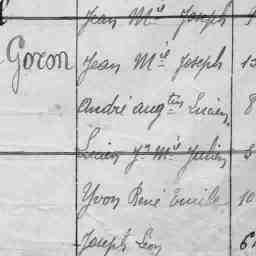 Jean Mie Joseph
Goron Jean Mie Joseph 13
André augtin Lucien 8
Lucien Jn Mie Julien
Yvon René Emile 10
Joseph Léon 6